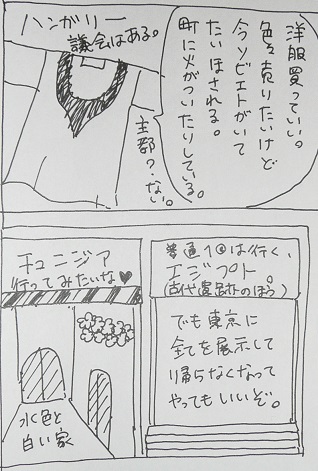 洋服買っていい。
色々売りたいけど
今ソビエトがいて
たいほされる。
町に火がついたりしている。
ハンガリー
議会はある。
主都?ない。
普通1回は行く、
エジプト。
(古代遺跡のほう)
でも東京に
全てを展示して
帰らなくなって
やってもいいぞ。
チュニジア
行ってみたいな♥
水色と
白い家